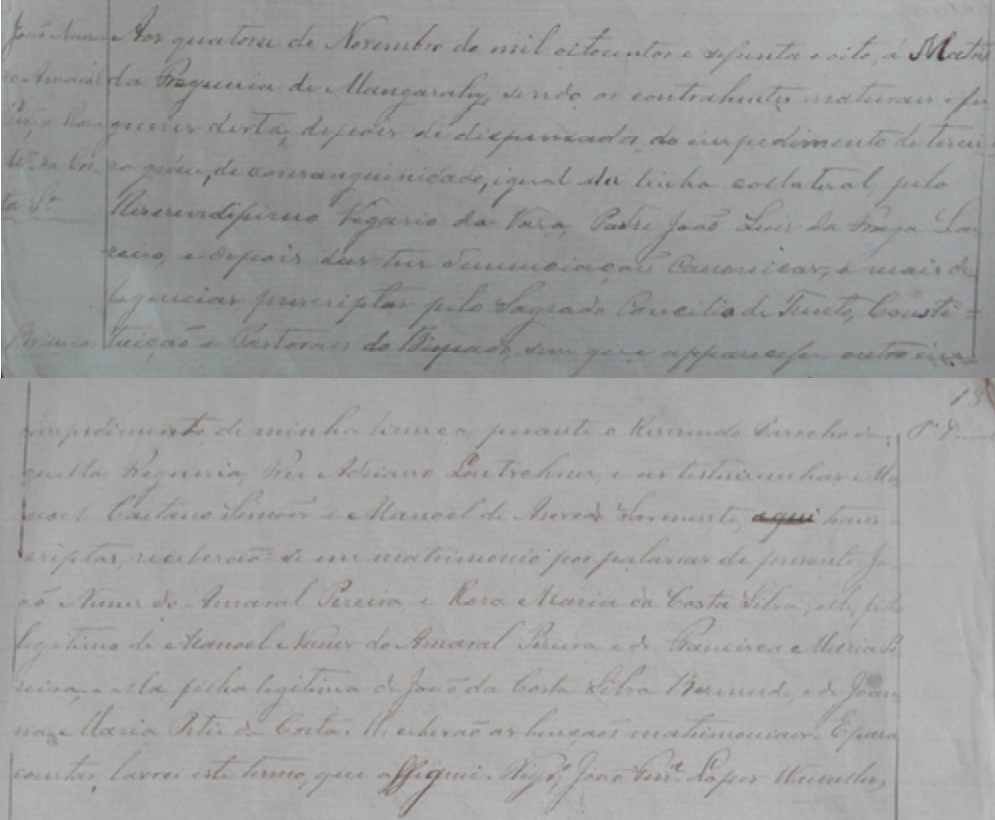 João Nunes
do Amaral
Per.ª, e Rosa
M.ª da Cos-
ta S.ª
Aos quatorze de Novembro de mil oitocentos e setenta e oito, á Matris
da Freguezia de Mangarahy, sendo os contrahentes naturaes e fre
guezes desta, depois de dispensados do impedimento de tercei
ro gráu, de consanguinidade, igual da linha collateral, pelo
Reverendissimo Vigario da Vara, Padre João Luis da Fraga Lou
reiro, e depois das tres denunciações Canonicas, e mais de
ligencias prescriptas pelo Sagrado Concilio de Trento, Consti-
tuição e Pastoraes do Bispado, sem que apparecesse outro im
impedimento de minha licença, perante o Reverendo Parocho da-
quella Freguezia, Frei Adriano e as testemunhas Ma
noel Caetano Simões e Manoel de Sarmento, aqui trans
criptas, receberão-se em matrimonio por palavras de presente Jo
ão Nunes do Amaral Pereira, e Rosa Maria da Costa Silva, elle, filho
legitimo de Manoel Nunes do Amaral Pereira e de Francisca Maria Pe
reira, e ella filha legitima de João da Costa Silva e de Joan
na Maria da Costa. Receberão as bençãos matrimoniaes. E para
constar, lavrei este termo, que assignei. Vig.º, João Ferr.ª Lopes